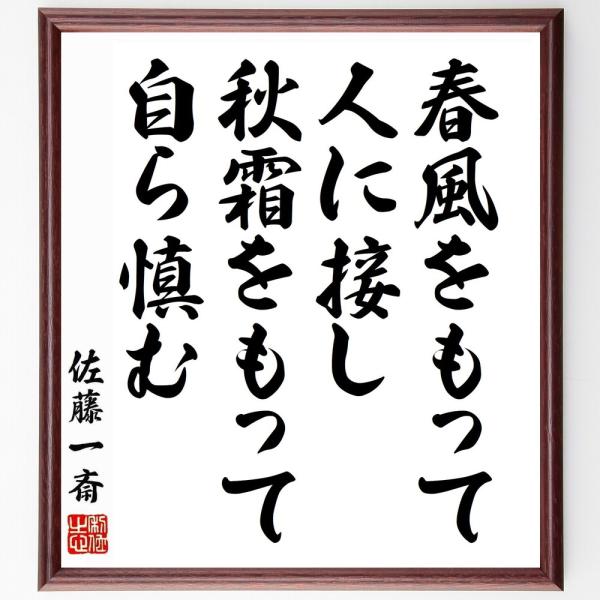 春風をもって
人に接し
秋霜をもって
自ら慎む
佐藤一斎